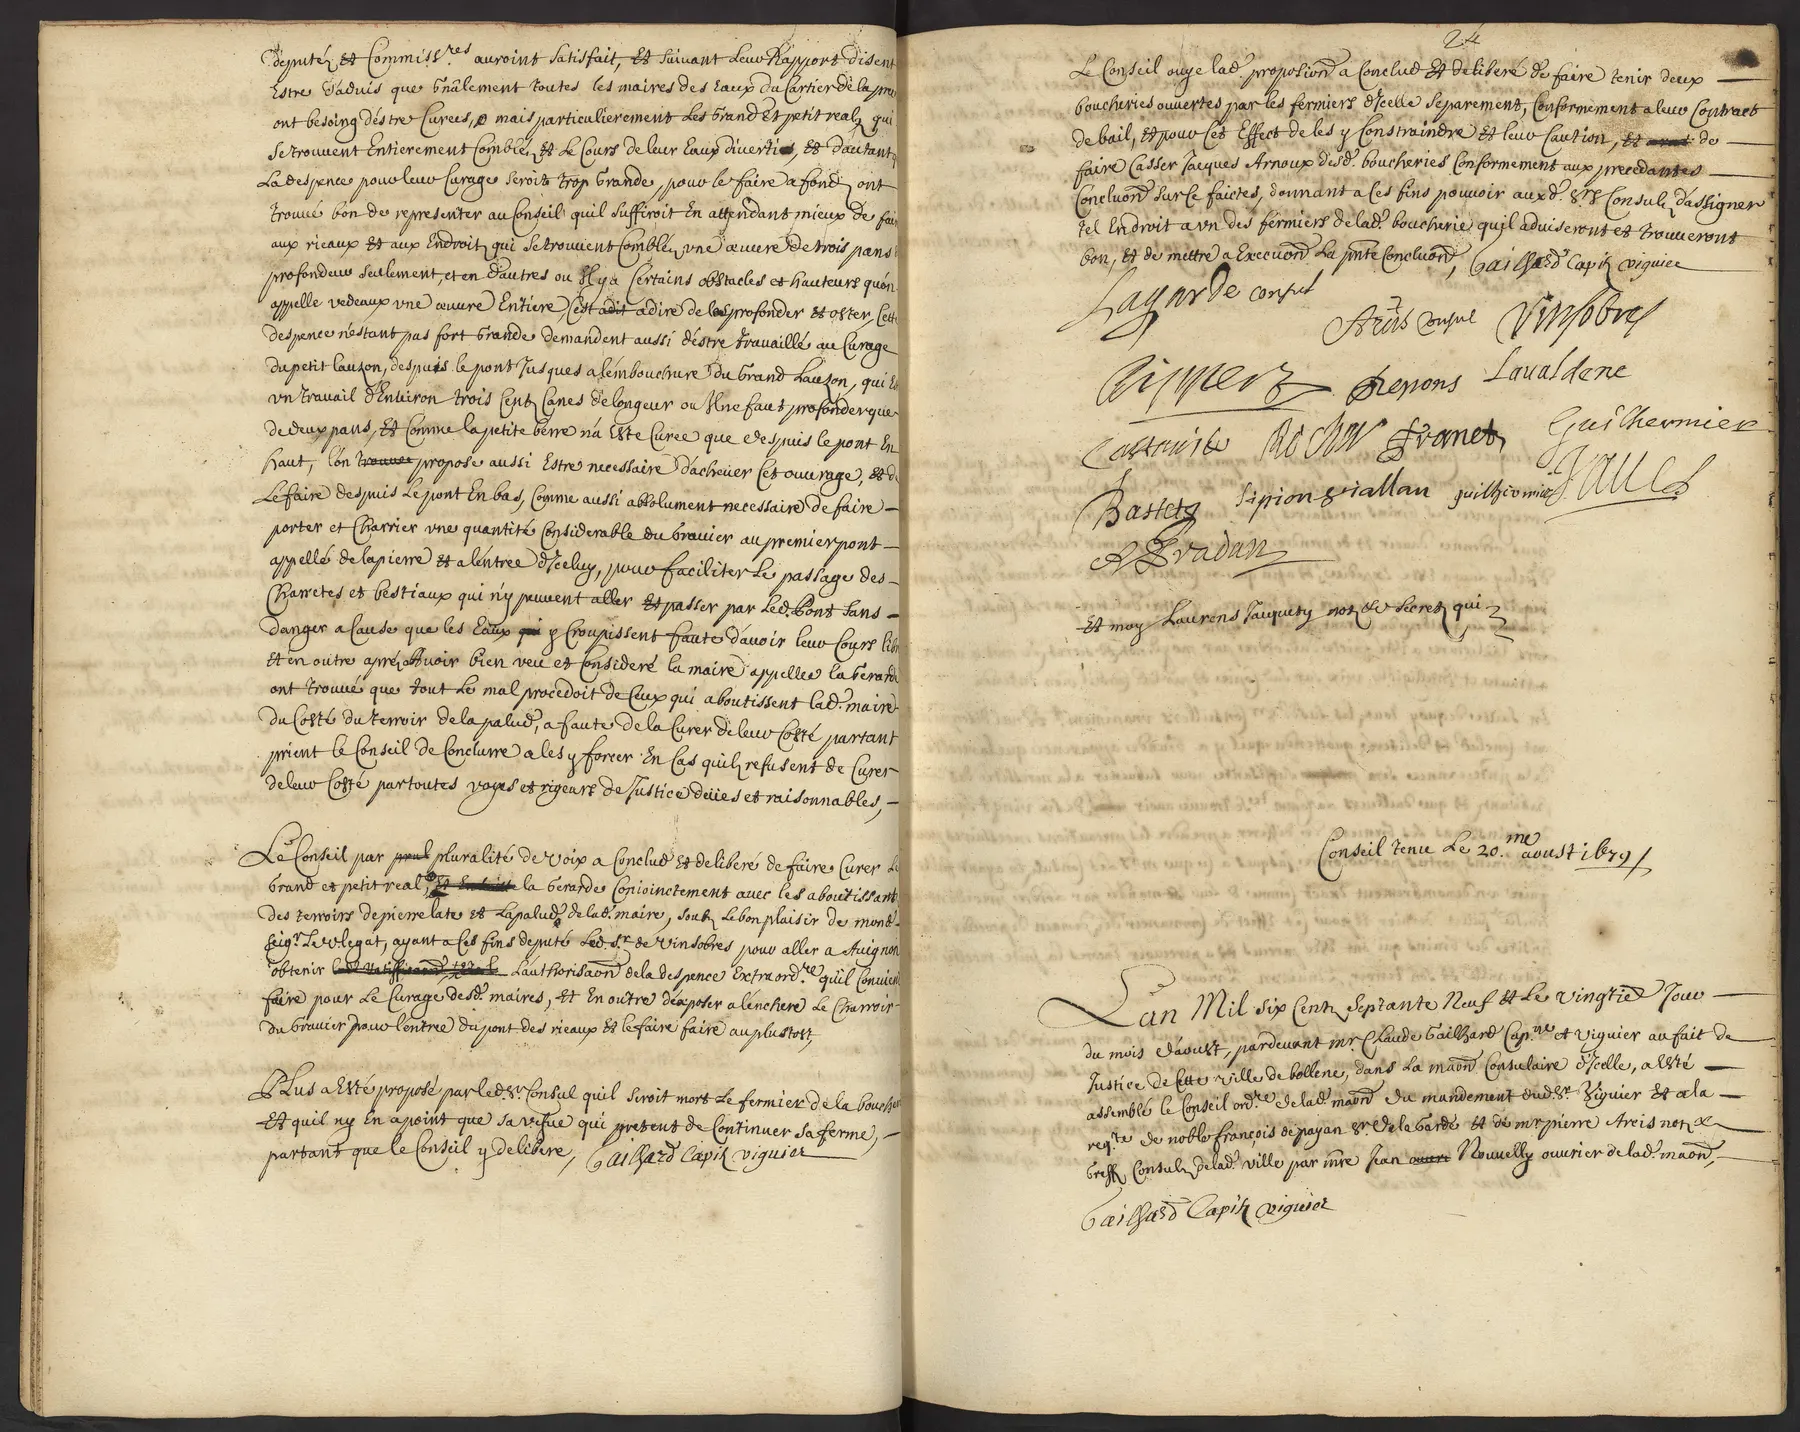 deputéz et Commiss.res auroint satisfait, et suivant leur Rapport disent
Estre d'aduis que gñalement toutes les maires des Eaux du Cartier de la
ont besoing d'estre Curees, mais particulierement les Grand et petit realz qui
se trouuent Entierement Combléz et le Cours de leur Eaux diverties, et d'autant
La despence pour leur Curage seroit trop Grande, pour le faire a fond, ont
trouué bon de representer au Conseil qu'il suffiroit En attendant mieux de
aux rieaux et aux Endroitz qui se trouuient Comblés, vne œuure de trois pans
profondeur seulement, et en d'autres ou Il y a Certains obstacles et hauteurs qu'on
appelle vedeaux vne œuure Entiere, C'est adire de les profonder et oster, Cette
despence n'estant pas fort Grande demandent aussi d'estre trauaillé au Curage
du petit lauzon, despuis le pont Jusques a l'embouchure du Grand Lauzon, qui
vn trauail d'Enuiron trois Centz Canes de longeur ou Il ne faut profonder que
de deux pans, Et Comme la petite berre n'a Esté Curee que despuis le pont En
haut, l'on trouue propose aussi Estre necessaire d'acheuer Cet ouurage, et de
Le faire despuis Le pont En bas, Comme aussi absolument necessaire de faire
porter et Charrier vne quantité Considerable du Grauier au premier pont
appellé de la pierre et a l'entree d'Iceluy, pour faciliter Le passage des
Charretes et bestiaux qui n'y peuuent aller et passer par Led. Pont sans
danger a Cause que les Eaux qui y Croupissent faute d'auoir leur Cours
Et en outre aprez Auoir bien veu et Consideré la maire appellee la Gerarde
ont trouué que tout Le mal procedoit de Ceux qui aboutissent lad. maire
du Costé du terroir de la palud, a faute de la Curer de leur Costé partant
prient le Conseil de Conclurre a les y forcer En Cas qu'ilz refusent de Curer
de leur Costé par toutes voyes et rigeurs de Justice deües et raisonnables,
Le Conseil par prul pluralité de voix a Conclud et deliberé de faire Curer Le
Grand et petit real, la Gerarde Conjoinctement auec les aboutissantz
des terroirs de pierrelate et Lapalud de lad. maire, soutz Le bon plaisir de mond.
seigr. Le Vlegat, ayant a Ces fins deputé Led. sr. de Vinsobres pour aller a Auignon
obtenir L'authorisaõn de la despence Extraord.re qu'il Conuient
faire pour Le Curage desd. maires, Et En outre d'exposer a l'enchere Le Charroir
du Grauier pour l'entree du pont des rieaux et le faire faire au plustost,
Plus a Esté proposé par led. sr. Consul qu'il seroit mort Le fermier de la
Et qu'il n'y En a point que sa vefue qui pretent de Continuer sa ferme,
partant que le Conseil y delibere, Gailhard Capñ viguier
24
Le Conseil ouye lad. proposiõn a Conclud et deliberé de faire tenir deux
boucheries ouuertes par les fermiers d'Icelle separement, Conformement a leur Contract
de bail, et pour Cet Effect de les y Constraindre et leur Caution, et de
faire Casser Jacques Arnoux desd. boucheries Conformement aux precedantes
Concluõns sur Ce faictes, donnant a Ces fins pouuoir auxd. srs Consulz d'assigner
tel Endroit a vn des fermiers de lad. boucherie qu'il aduiseront et trouueront
bon, et de mettre a Execuõn La pñte Concluõn, Gailhard Capñ viguier
Lagarde consul
Areis Consul Vinsobres
Repons Lavaldene
Rochas Granet Guilhermier
Bastetz Sipion Guilhermier Faure
A Pradan
Et moy Laurens Jauquety notre Secretz qui
Conseil tenu Le 20.me aoust 1679
L'an Mil six Centz Septante Neuf et Le vingtie Jour
du mois d'aoust, pardeuant mr. Claude Gailhard Cap.ne et viguier au fait de
Justice de Cette ville de bollene, dans La maõn Consulaire d'Icelle, a Esté
assemblé le Conseil ord.re de lad. maõn du mandement dud. sr. Viguier et a la
req.te de noble françois de payan sr. de la Garde et de mr. pierre Areis not.
Greff. Consulz de lad. ville par mre Jean Nouuelly ouurier de lad. maõn,
Gailhard Capñ viguier